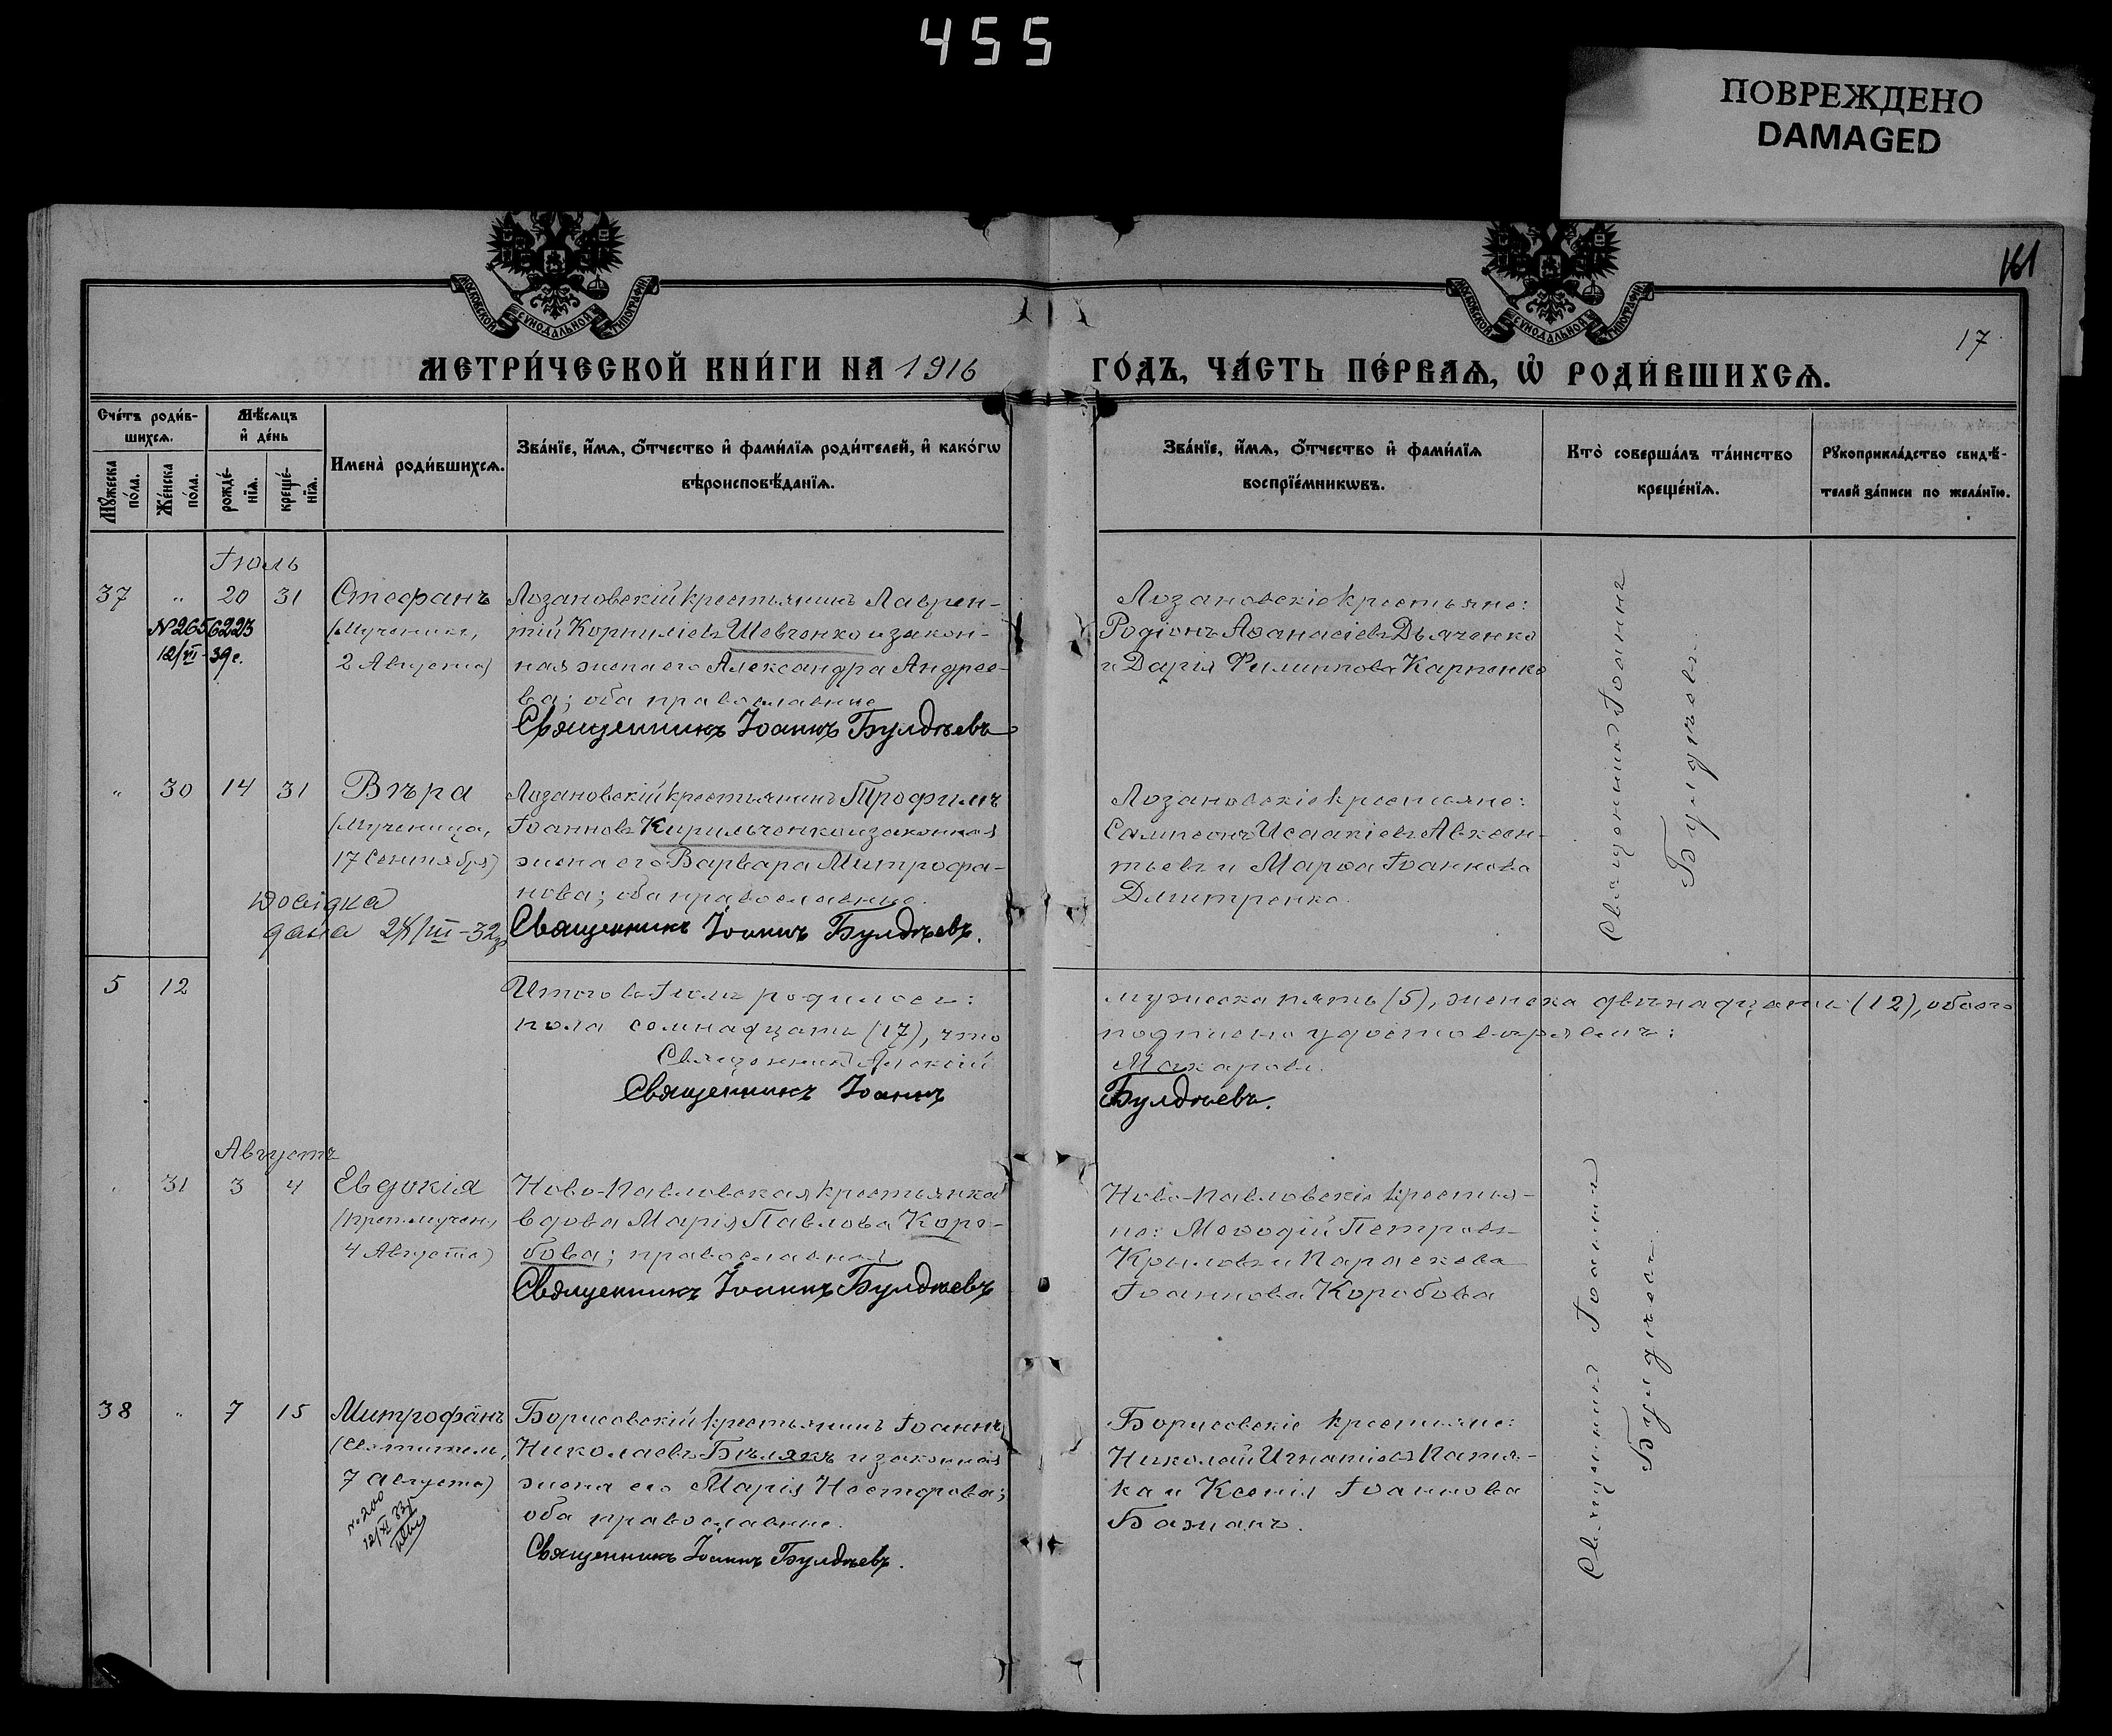 455
ПОВРЕЖДЕНО
DAMAGED
161
17
МОСКОВСКОЙ СѴНОДАЛЬНОЙ ТИПОГРАФІИ
МОСКОВСКОЙ СѴНОДАЛЬНОЙ ТИПОГРАФІИ
МЕТРИ́ЧЕСКОЙ КНИ́ГИ НА 1916 ГО́ДЪ, ЧА́СТЬ ПЕ́РВАѦ, Ѽ РОДИ́ВШИХСѦ.
Сче́тъ роди́в-
шихсѧ.
Мꙋ́жеска по́ла.
Же́нска по́ла.
Мѣ́сѧцъ
и҆ де́нь
рожде́-
нїѧ.
креще́-
нїѧ.
Имена̀ роди́вшихсѧ.
Зва́нїе, и҆́мѧ, ѻ҆́тчество и҆ фами́лїѧ роди́телей, и҆ како́гѡ
вѣроисповѣ́данїѧ.
Зва́нїе, и҆́мѧ, ѻ҆́тчество и҆ фами́лїѧ
воспрїе́мникѡвъ.
Кто̀ соверша́лъ та́инство
креще́нїѧ.
Рꙋкоприкла́дство свидѣ́-
телей за́писи по жела́нїю.
Іюль
37 " 20 31 Стефанъ
(Мученикъ,
2 Августа)
№2656223
12/VII-39г.
Лозановскій крестьянинъ Лаврен-
тій Корниліевъ Шевченко и закон-
ная жена его Александра Андрее-
ва; оба православные
Священникъ Іоаннъ Булдѣевъ
Лозановскіе крестьяне:
Родіонъ Аѳанасіевъ Дьяченко
и Дарія Филиппова Карпенко
Священникъ Іоаннъ
Булдѣевъ
" 30 14 31 Вѣра
(Мученица,
17 Сентября)
Довідка
дана 28/III-32р
Лозановскій крестьянинъ Трофимъ
Іоанновъ Кирильченко и законная
жена его Варвара Митрофа-
нова; оба православные.
Священникъ Іоаннъ Булдѣевъ.
Лозановскіе крестьяне:
Сампсонъ Исаакіевъ Авксен-
тьевъ и Марѳа Іоаннова
Дмитренко.
5 12
Итого въ Іюлѣ родилось: мужеска пять (5), женска двѣнадцать (12), обоего
пола семнадцать (17), что подписью удостовѣряемъ:
Священникъ Алексій Макаровъ.
Священникъ Іоаннъ Булдѣевъ.
Августъ
" 31 3 4 Евдокія
(препмучен,
4 Августа)
Ново-Павловская крестьянка
вдова Марія Павлова Коро-
бова; православная
Священникъ Іоаннъ Булдѣевъ
Ново-Павловскіе крестья-
не: Меѳодій Петровъ
Крыловъ и Параскева
Іоаннова Коробова
Священникъ Іоаннъ
Булдѣевъ
38 " 7 15 Митрофанъ
(Святитель,
7 Августа)
№200
12/XI 33
Борисовскій крестьянинъ Іоаннъ
Николаевъ Бѣлякъ и законная
жена его Марія Несторова;
оба православные.
Священникъ Іоаннъ Булдѣевъ.
Борисовскіе крестьяне:
Николай Игнатіевъ Патя-
ка и Ксенія Іоаннова
Бажанъ.